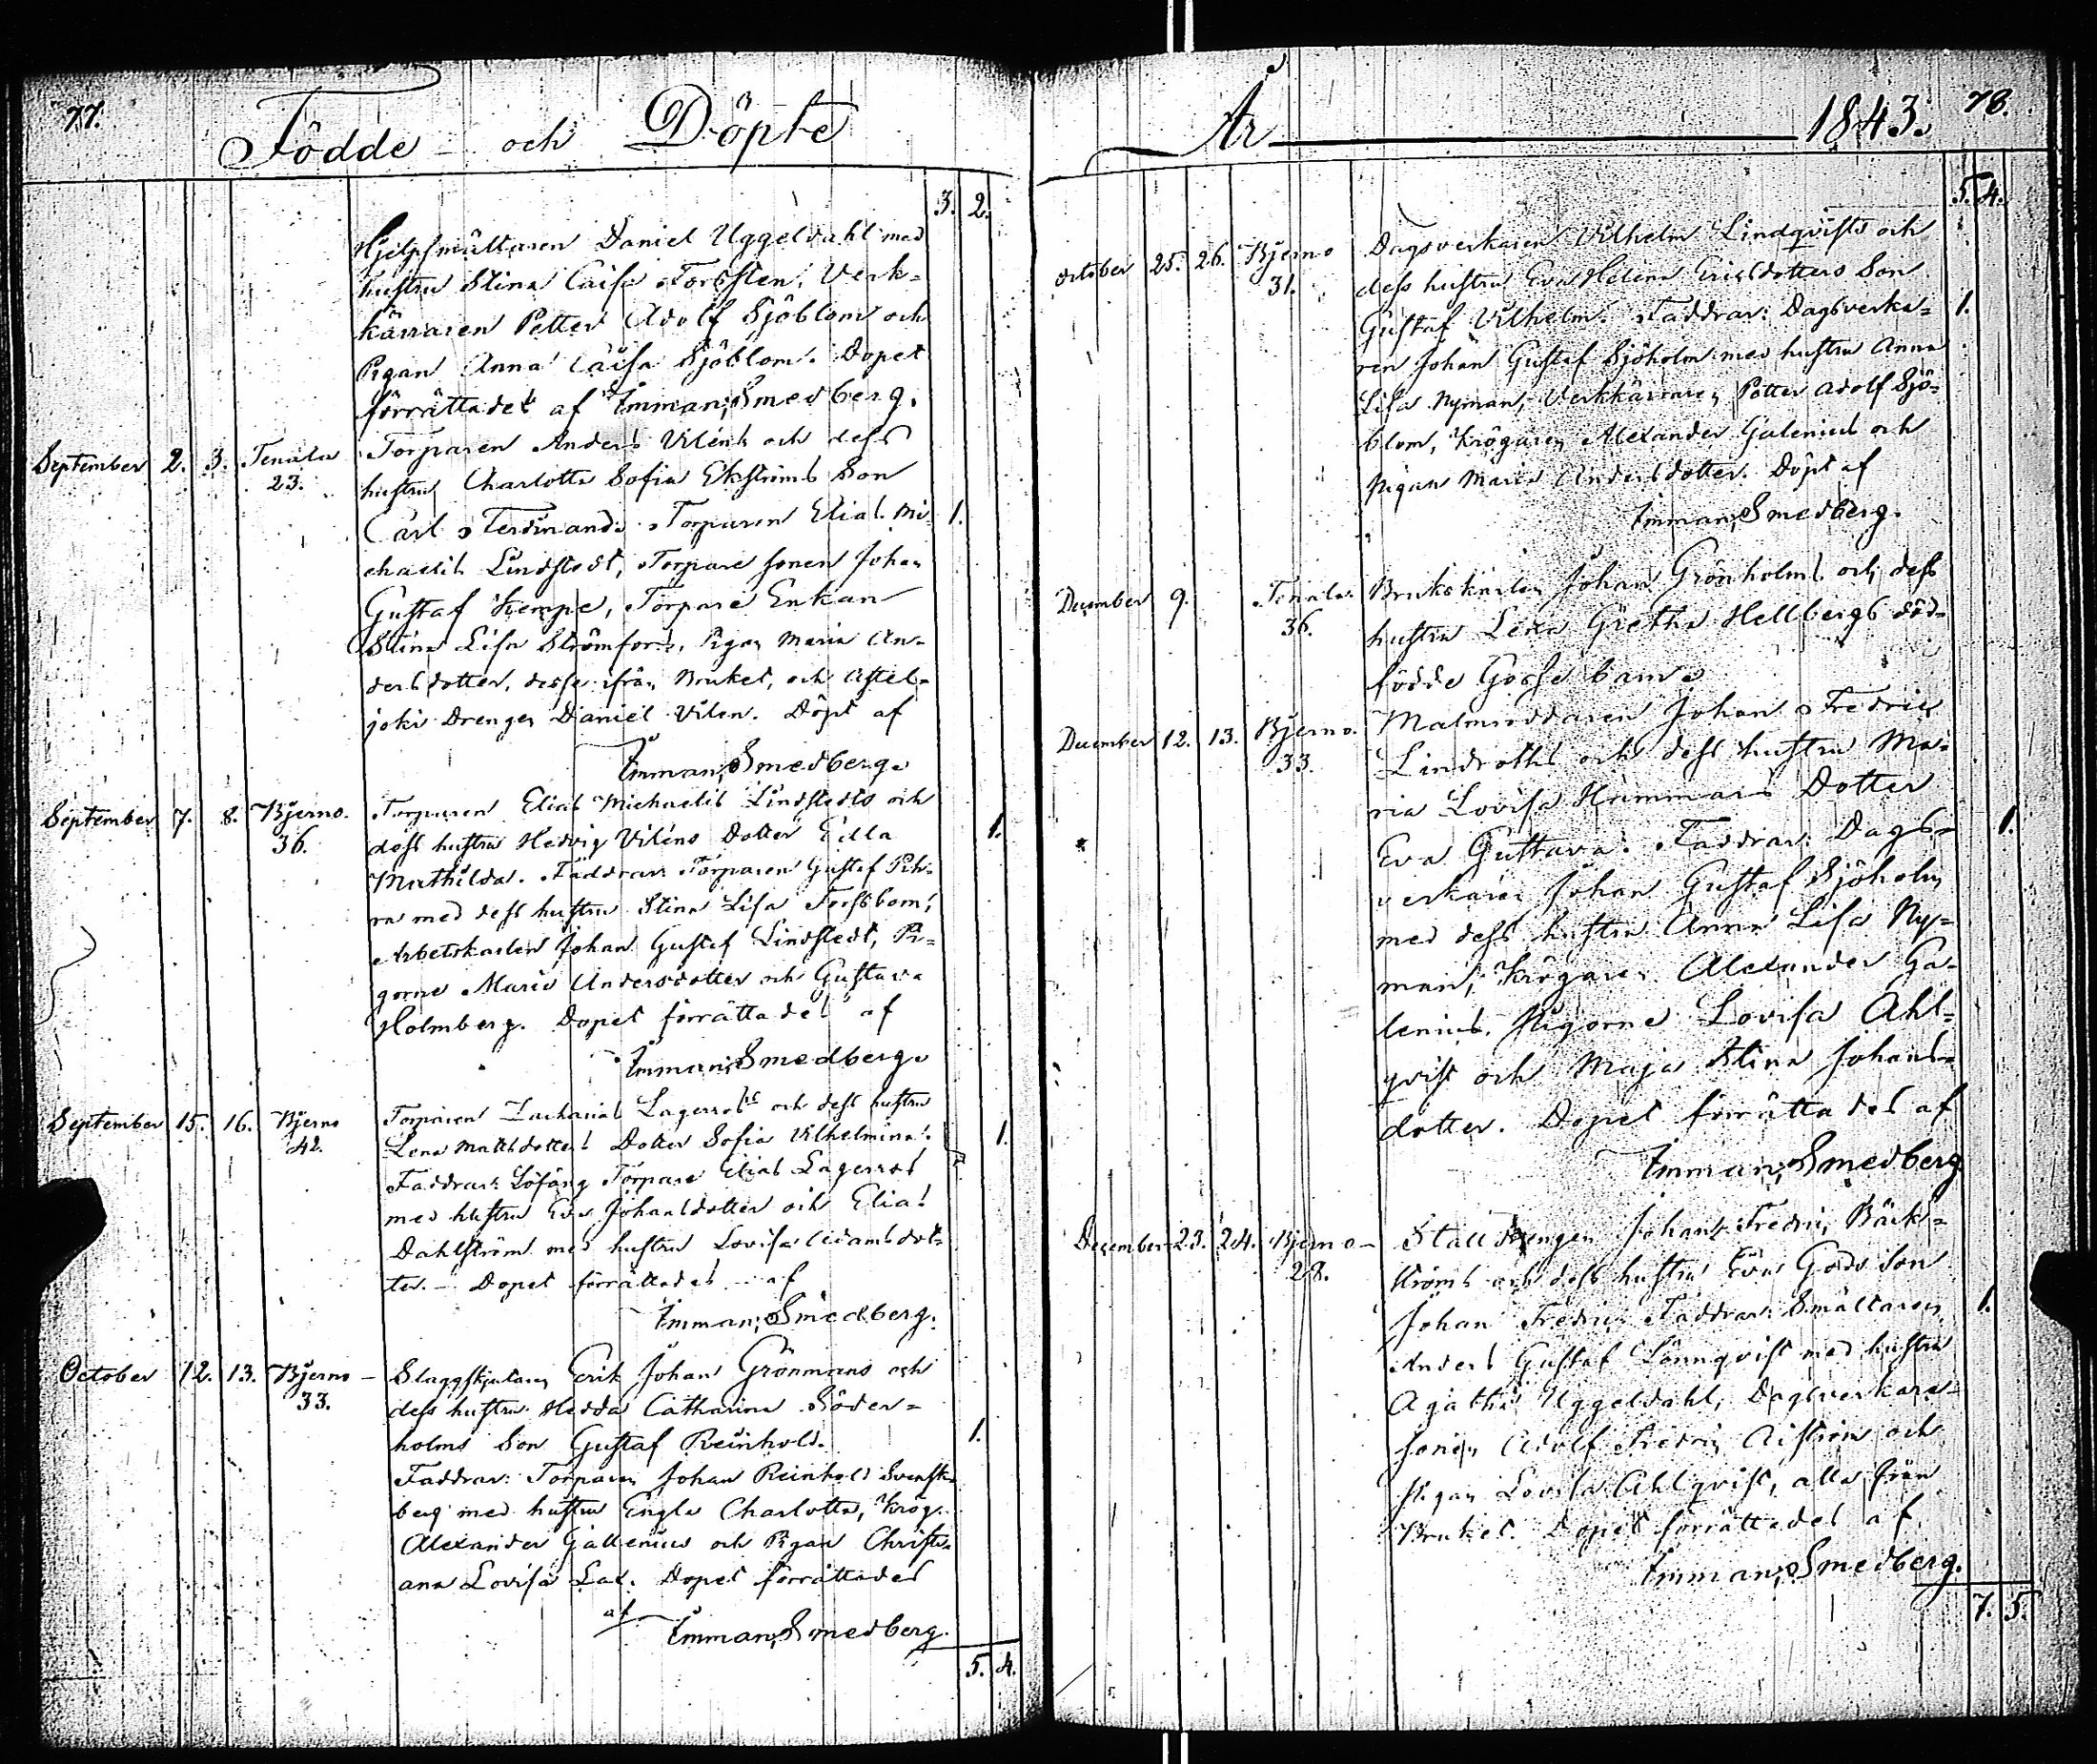 77.
Födde och Döpte
3. 2.
Hjelpsmältaren Daniel Uggeldahl med
hustru Stina Caisa Forssten, Verk-
kärraren Petter Adolf Sjöblom och
Pigan Anna Caisa Sjöblom. Dopet
förrättadet af Imman; Smedberg.
September 2. 3. Tenala Torparen Anders Viléns och dess
23. hustru Charlotta Sofia Ekströms Son
Carl Ferdinand. Torparen Elias Mi- 1.
chaelis Lindstedt, Torpare sonen Johan
Gustaf Kempe, Torpare Enkan
Stina Lisa Strömfors, Pigan Maria An-
dersdotter, desse ifrån Bruket, och
joki Drengen Daniel Vilen. Döpt af
Imman; Smedberg.
September 7. 8. Bjerno. Torparen Elias Michaelis Lindstedts och
36. dess hustru Hedvig Viléns Dotter Edla 1.
Mathilda. Faddrar: Torparen Gustaf
ra med dess hustru Stina Lisa Forssbom,
Arbetskarlen Johan Gustaf Lindstedt, Pi-
gorne Maria Andersdotter och Gustava
Holmberg. Dopet förrättadet af
Imman; Smedberg.
September 15. 16. Bjerno Torparen Zacharias Lagerros och dess hustru
42. Lena Mattsdotters Dotter Sofia Vilhelmina. 1.
Faddrar: Torpare Elias Lagerros
med hustru Eva Johansdotter och Elias
Dahlström med hustru Lovisa Adamsdot-
ter. Dopet förrättades af
Imman; Smedberg.
October 12. 13. Bjerno Slaggskjutaren Erik Johan Grönmans och
33. dess hustru Hedda Catharina Söder-
holms Son Gustaf Reinhold. 1.
Faddrar: Torparen Johan Reinhold Svensk-
berg med hustru Engla Charlotta, Krög.
Alexander Gallenius och Pigan Christi-
ana Lovisa Lax. Dopet förrättades
af Imman; Smedberg.
5. 4.
År 1843. 78.
5. 4.
October 25. 26. Bjerno Dagsverkaren Vilhelm Lindqvists och
31. dess hustru Eva Helena Ericsdotters Son
Gustaf Vilhelm. Faddrar: Dagsverka- 1.
ren Johan Gustaf Sjöholm med hustru Anna
Lisa Nyman, Verkkärraren Petter Adolf Sjö-
blom, Krögaren Alexander Galenius och
Pigan Maria Andersdotter. Döpt af
Imman; Smedberg.
December 9. Tenala. Brukskarlen Johan Grönholms och dess
36. hustru Lena Gretha Hellbergs död-
födde Gosse barn.
December 12. 13. Bjerno. Johan Fredric
33. Lindroths och dess hustru Ma-
ria Lovisa Hammars Dotter
Eva Gustava. Faddrar: Dags- 1.
verkaren Johan Gustaf Sjöholm
med dess hustru Anna Lisa Ny-
man, Krögaren Alexander Ga-
lenius. Pigorne Lovisa Ahl-
qvist och Maja Stina Johans-
dotter. Dopet förrättades af
Imman; Smedberg
December 23. 24. Bjerno Stalldrengen Johan Fredric Bäck-
28. ströms och dess hustru Eva Gods Son
Johan Fredric. Faddrar: Smältaren 1.
Anders Gustaf Lönnqvist med hustru
Agatha Uggeldahl, Dagsverkare
sonen Adolf Fredric och
Pigan Lovisa Ahlqvist, alla från
Bruket. Dopet förrättades af
Imman; Smedberg.
7. 5.